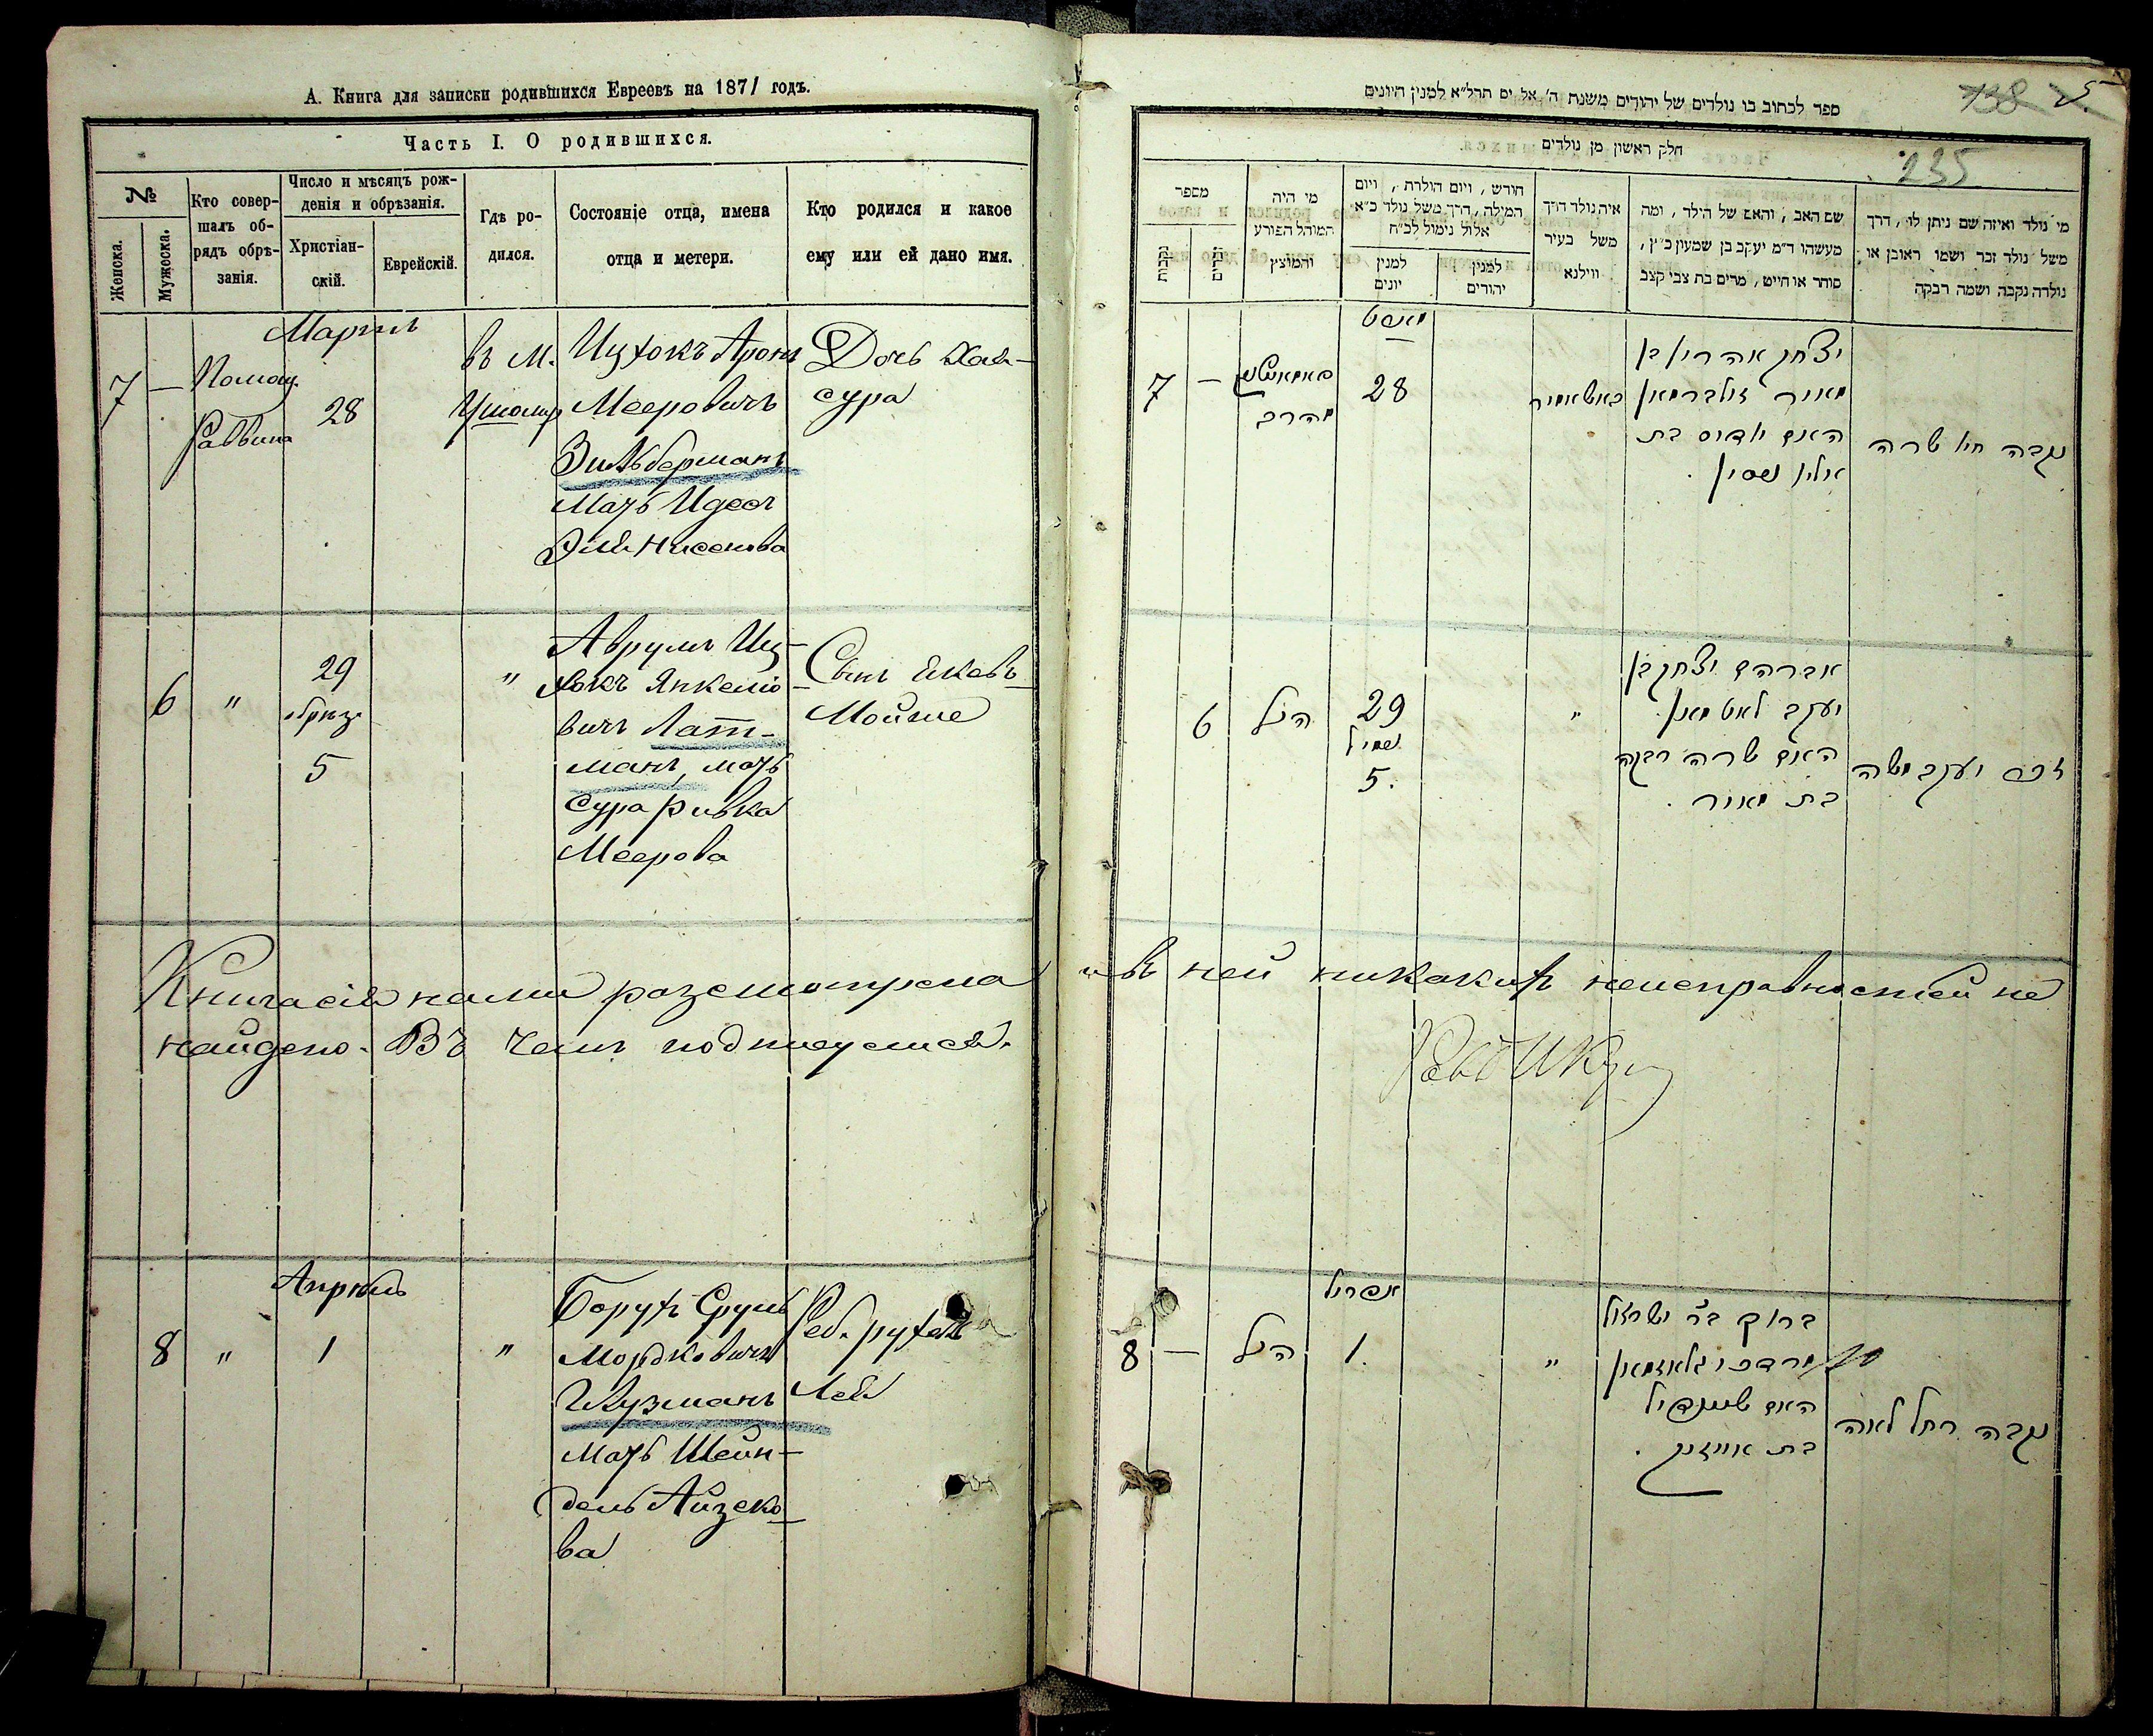 А. Книга для записки родившихся Евреевъ на 1871 годъ.
Часть I. О родившихся.
№
Женска.
Мужеска.
Кто совер-
шалъ об-
рядъ обрѣ-
занія.
Число и мѣсяцъ рож-
денія и обрѣзанія.
Христіан-
скій.
Еврейскій.
Гдѣ ро-
дился.
Состояніе отца, имена
отца и метери.
Кто родился и какое
ему или ей дано имя.
Мартъ
7 —
Помощ.
Раввина
28
въ м.
Ушомир
Ицхокъ Аронъ
Мееровичъ
Зильберманъ
Мать Идесъ
Эли Нисенова
Дочь Хая-
сура
6 "
29
обрѣз.
5
"
Аврумъ Иц-
хокъ Янкеліо-
вичъ Лат-
манъ, мать
Сура ривка
Меерова
Сынъ Яковъ
Мойше
Книга сія нами разсмотрена и въ ней никакихъ неисправностей не
найдено. Въ чемъ подписуемся.
Апрѣль
8 "
1
"
Борухъ Сруль
Мордковичъ
Глузманъ
Мать Шейн-
дель Айзеко-
ва
Реб. рухель
Лея
138
235
ספר לכתוב בו נולדים של יהודים משנת ה' אל ים תרל"א למנין היונים
חלק ראשון מן נולדים
מספר
נקבות
זכרים
מי היה
המוהל הפורע
והמוצץ
חורש, ויום הולרת, ויום
המילה, דרך משל נולד כ"א
אלול נימול לכ"ח
למנין
יונים
למנין
יהודים
איה נולד דרך
משל בעיר
ווילנא
שם האב, והאם של הילד, ומה
מעשהו ד"מ יעקב בן שמעון כ"ץ,
סוחר או חייט, מרים בת צבי קצב
מי נולד ואיזה שם ניתן לו, דרך
משל נולד זכר ושמו ראובן או
נולדה נקבה ושמה רבקה
מארט
7 —
הרב
28
יצחק אהרון בן
מאיר זילברמאן
האם יודית בת
אלי' ניסין.
נקבה חיה שרה
6
הנ"ל
29
נימול
5.
"
אברהם יצחק בן
יעקב לאטמאן
האם שרה רבקה
בת מאיר.
זכר יעקב משה
אפריל
8 —
הנ"ל
1.
"
ברוך בר ישראל
מרדכי גלוזמאן
האם שיינדיל
בת אייזיק.
נקבה רחל לאה